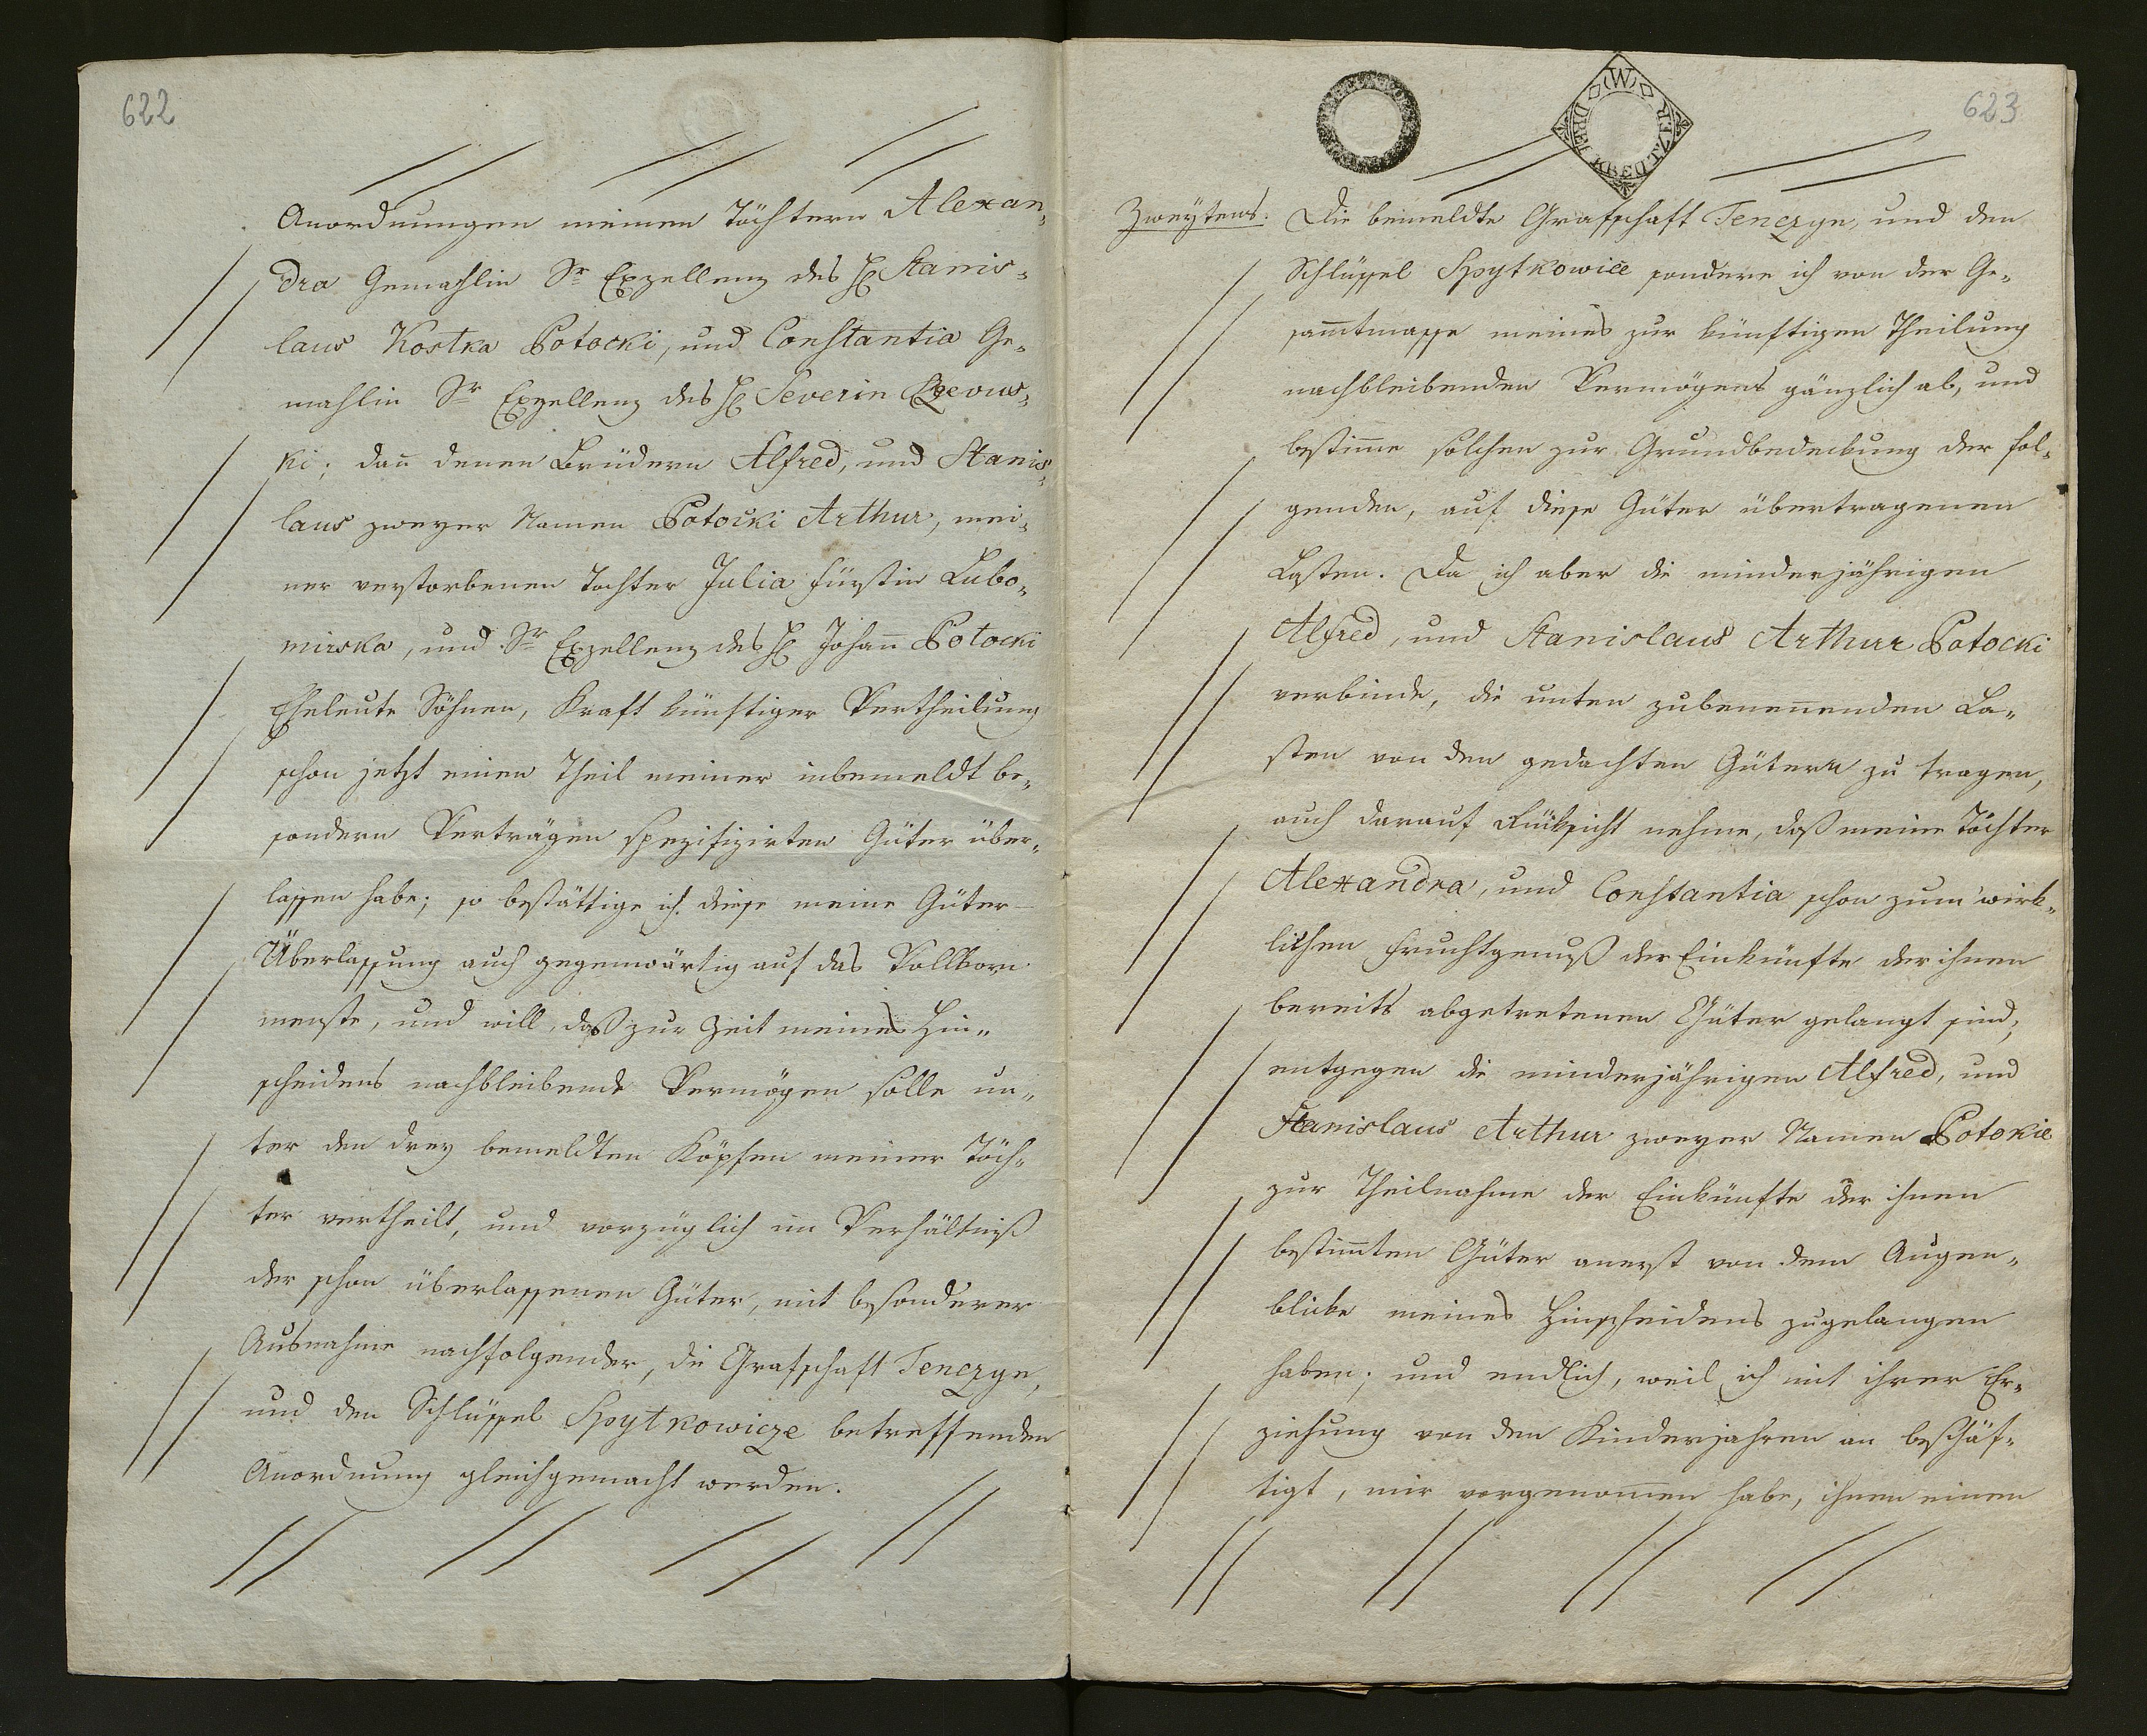 622
Anordnungen meinen Töchtern Alexan„
dra Gemahlin Sr Exzellenz des H Stanis„
laus Kostka Potocki, und Constantia Ge„
mahlin Sr Exzellenz des H Severin Rzevus„
ki; dan̄ denen Brüdern Alfred, und Stanis„
laus zweyer Namen Potocki Arthur, mei„
ner verstorbenen Tochter Julia Fürstin Lubo„
mirska, und Sr Exzellenz des H Johan̄ Potocki
Eheleute Söhnen, Kraft künftiger Vertheilung
schon jetzt einen Theil meiner inbemeldt be„
sondern Verträgen spezifizirten Güter über„
lassen habe; so bestättige ich diese meine Güter-
Überlassung auch gegenwärtig auf das Vollkom
menste, und will, daß zur Zeit meines Hin„
scheidens nachbleibende Vermögen solle un„
ter den drey bemeldten Köpfen meiner Töch„
ter vertheilt, und vorzüglich im Verhältniß
der schon überlassenen Güter, mit besonderer
Ausnahme nachfolgender, die Grafschaft Tenczyn,
und den Schlüssel Spytkowicze betreffenden
Anordnung gleichgemacht werden.
623
W
DREI KREUTZER
Zweytens. Die bemeldte Grafschaft Tenczyn, und den
Schlüssel Spytkowice sondere ich von der Ge„
sam̄tmasse meines zur künftigen Theilung
nachbleibenden Vermögens gänzlich ab, und
bestim̄e solchen zur Grundbedeckung der fol„
genden, auf diese Güter übertragenen
Lasten. Da ich aber die minderjährigen
Alfred, und Stanislaus Arthur Potocki
verbinde, die unten zubenen̄enden La„
sten von den gedachten Gütern zu tragen,
auch darauf Rüksicht nehme, daß meine Töchter
Alexandra, und Constantia schon zum wirk„
lichen Fruchtgenuß der Einkünfte der ihnen
bereits abgetretenen Güter gelangt sind;
entgegen die minderjährigen Alfred, und
Stanislaus Arthur zweyer Namen Potokie
zur Theilnahme der Einkünfte der ihnen
bestim̄ten Güter anerst von dem Augen„
blicke meines Hinscheidens zugelangen
haben; und endlich, weil ich mit ihrer Er„
ziehung von den Kinderjahren an beschäf„
tigt, mir vorgenom̄en habe, ihnen einen